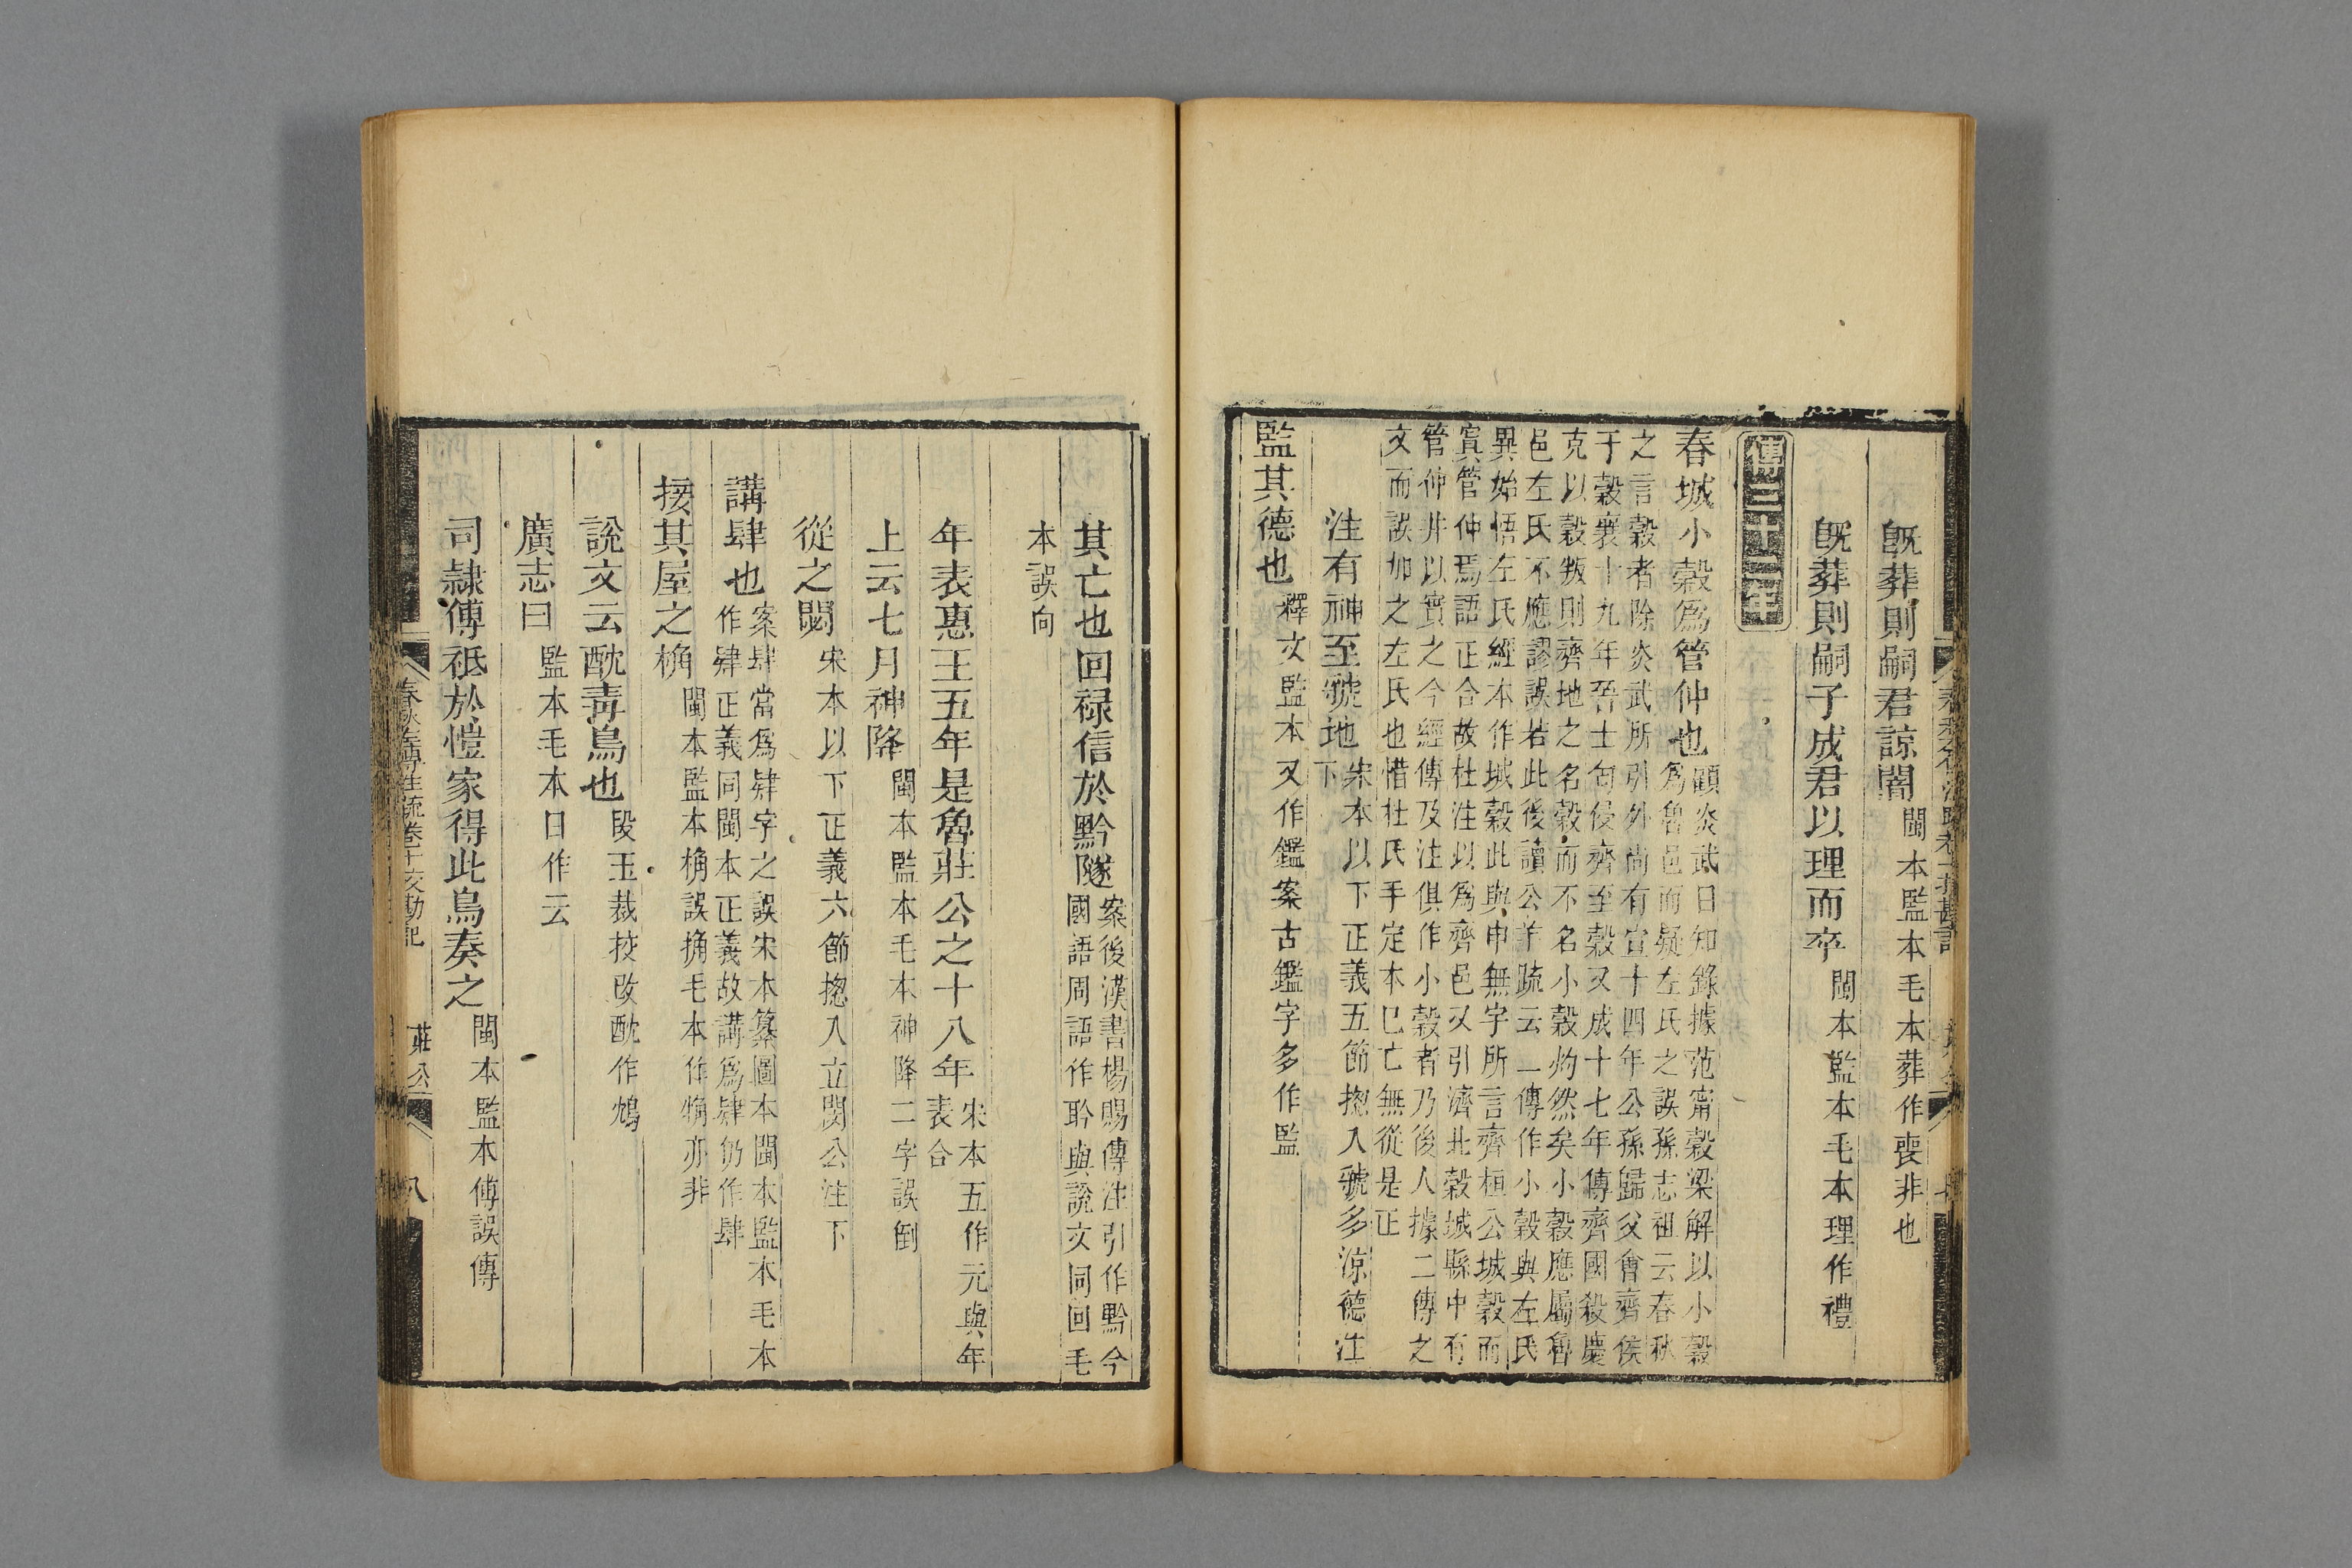 既葬則嗣君諒闇閩本監本毛本葬作喪非也
既葬則嗣子成君以理而卒閩本監本毛本理作禮
傳三十二年
春城小穀爲管仲也顧炎武日知錄據范甯穀梁解以小穀
爲魯邑而疑左氏之誤孫志祖云春秋
之言穀者除炎武所引外尚有宣十四年公孫歸父會齊侯
于穀襄十九年晉士匄侵齊至穀又成十七年傳齊國殺慶
克以穀叛則齊地之名穀而不名小穀灼然矣小穀應屬魯
邑左氏不應謬誤若此後讀公羊疏云二傳作小穀與左氏
異始悟左氏經本作城穀此與申無宇所言齊桓公城穀而
寘管仲焉語正合故杜注以爲齊邑又引濟北穀城縣中有
管仲井以實之今經傳及注俱作小穀者乃後人據二傳之
文而誤加之左氏也惜杜氏手定本已亡無從是正
注有神至虢地宋本以下正義五節揔入虢多涼德注
下
監其德也釋文監本又作鑑案古鑑字多作監
其亡也回禄信於黔隧案後漢書楊賜傳注引作黔今
國語周語作聆與說文同回毛
本誤向
年表惠王五年是魯莊公之十八年宋本五作元與年
表合
上云七月神降閩本監本毛本神降二字誤倒
從之閟宋本以下正義六節揔入立閔公注下
講肆也案肆當爲肄字之誤宋本纂圖本閩本監本毛本
作肄正義同閩本正義故講爲肄仍作肆
接其屋之桷閩本監本桷誤捔毛本作犄亦非
說文云酖毒鳥也段玉裁挍改酖作鴆
廣志曰監本毛本曰作云
司隷傅祗於愷家得此鳥奏之閩本監本傅誤傳
春秋左傳注疏卷十挍勘記
莊公
八